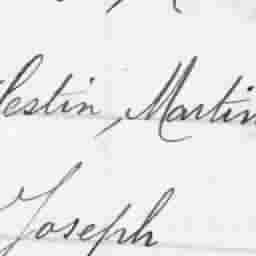 lestin, Martin
Joseph